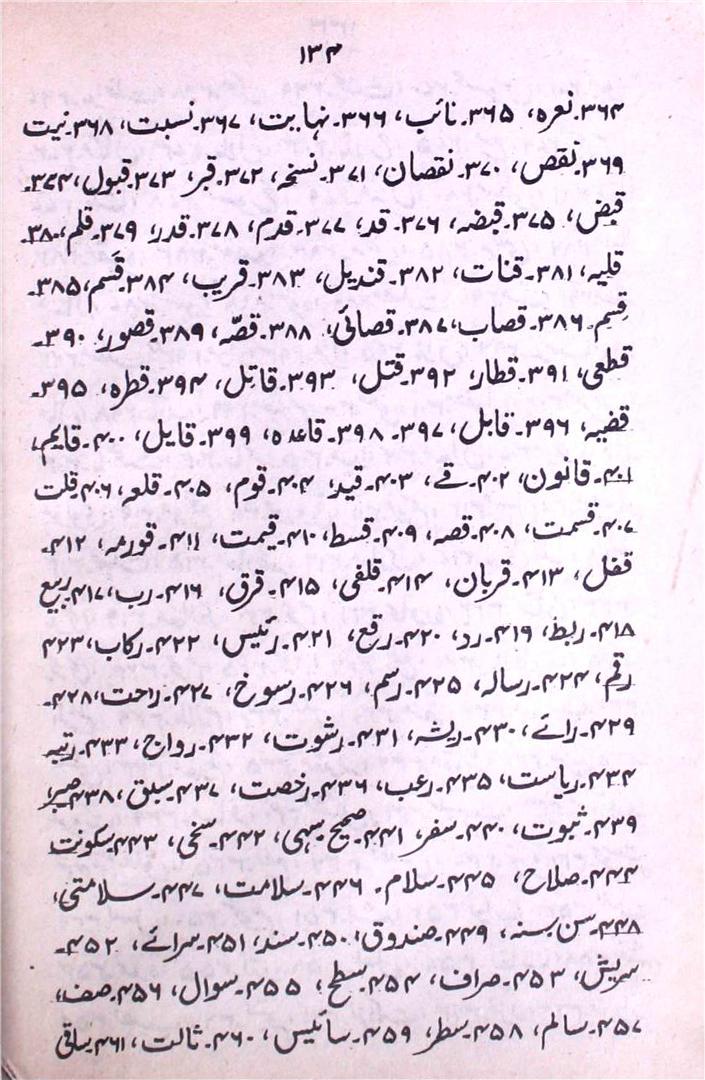 ۱۳۴
۳۶۴۔نعرہ، ۳۶۵۔نائب، ۳۶۶۔نہایت، ۳۶۷۔نسبت، ۳۶۸۔نیت
۳۶۹۔نقص، ۳۷۰۔نقصان، ۳۷۱۔نسخہ، ۳۷۲۔قبر، ۳۷۳۔قبول، ۳۷۴۔
قبض، ۳۷۵۔قبضہ، ۳۷۶۔قد، ۳۷۷۔قدم، ۳۷۸۔قدر، ۳۷۹۔قلم، ۳۸۰۔
قلیہ، ۳۸۱۔قنات، ۳۸۲۔قندیل، ۳۸۳۔قریب، ۳۸۴۔قَسم، ۳۸۵۔
قِسم۔ ۳۸۶۔قصاب، ۳۸۷۔قصائی، ۳۸۸۔قصّہ، ۳۸۹۔قصور، ۳۹۰۔
قطعی، ۳۹۱۔قطار، ۳۹۲۔قتل، ۳۹۳۔قاتل، ۳۹۴۔قطرہ، ۳۹۵۔
قضیہ، ۳۹۶۔قابل، ۳۹۷۔ ۳۹۸۔قاعدہ، ۳۹۹۔قایل، ۴۰۰۔قایم،
۴۰۱۔قانون، ۴۰۲۔قے، ۴۰۳۔قید، ۴۰۴۔قوم، ۴۰۵۔قلعہ، ۴۰۶۔قلت
۴۰۷۔قسمت، ۴۰۸۔قصہ، ۴۰۹۔قسط، ۴۱۰۔قیمت، ۴۱۱۔قورمہ، ۴۱۲۔
قفل، ۴۱۳۔قربان، ۴۱۴۔قلفی، ۴۱۵۔قرق، ۴۱۶۔رب، ۴۱۷۔ربیع
۴۱۸۔ربط، ۴۱۹۔رد، ۴۲۰۔رقع، ۴۲۱۔رئیس، ۴۲۲۔رکاب، ۴۲۳
رقم، ۴۲۴۔رسالہ، ۴۲۵۔رسم، ۴۲۶۔رسوخ، ۴۲۷۔راحت، ۴۲۸۔
۴۲۹۔رائے، ۴۳۰۔ریشہ، ۴۳۱۔رشوت، ۴۳۲۔رواج، ۴۳۳۔رتبہ
۴۳۴۔ریاست، ۴۳۵۔رعب، ۴۳۶۔رخصت، ۴۳۷۔سبق، ۴۳۸۔صبر،
۴۳۹۔ثبوت، ۴۴۰۔سفر، ۴۴۱۔صحیح۔سہی، ۴۴۲۔سخی، ۴۴۳۔سکونت
۴۴۴۔صلاح، ۴۴۵۔سلام۔ ۴۴۶۔سلامت، ۴۴۷۔سلامتی،
۴۴۸۔سن۔سنہ، ۴۴۹۔صندوق، ۴۵۰۔سند، ۴۵۱۔سرائے، ۴۵۲۔
سریش، ۴۵۳۔صراف، ۴۵۴۔سطح، ۴۵۵۔سوال، ۴۵۶۔صف،
۴۵۷۔سالم، ۴۵۸۔سطر، ۴۵۹۔سائیس، ۴۶۰۔ثالث، ۴۶۱۔ساقی